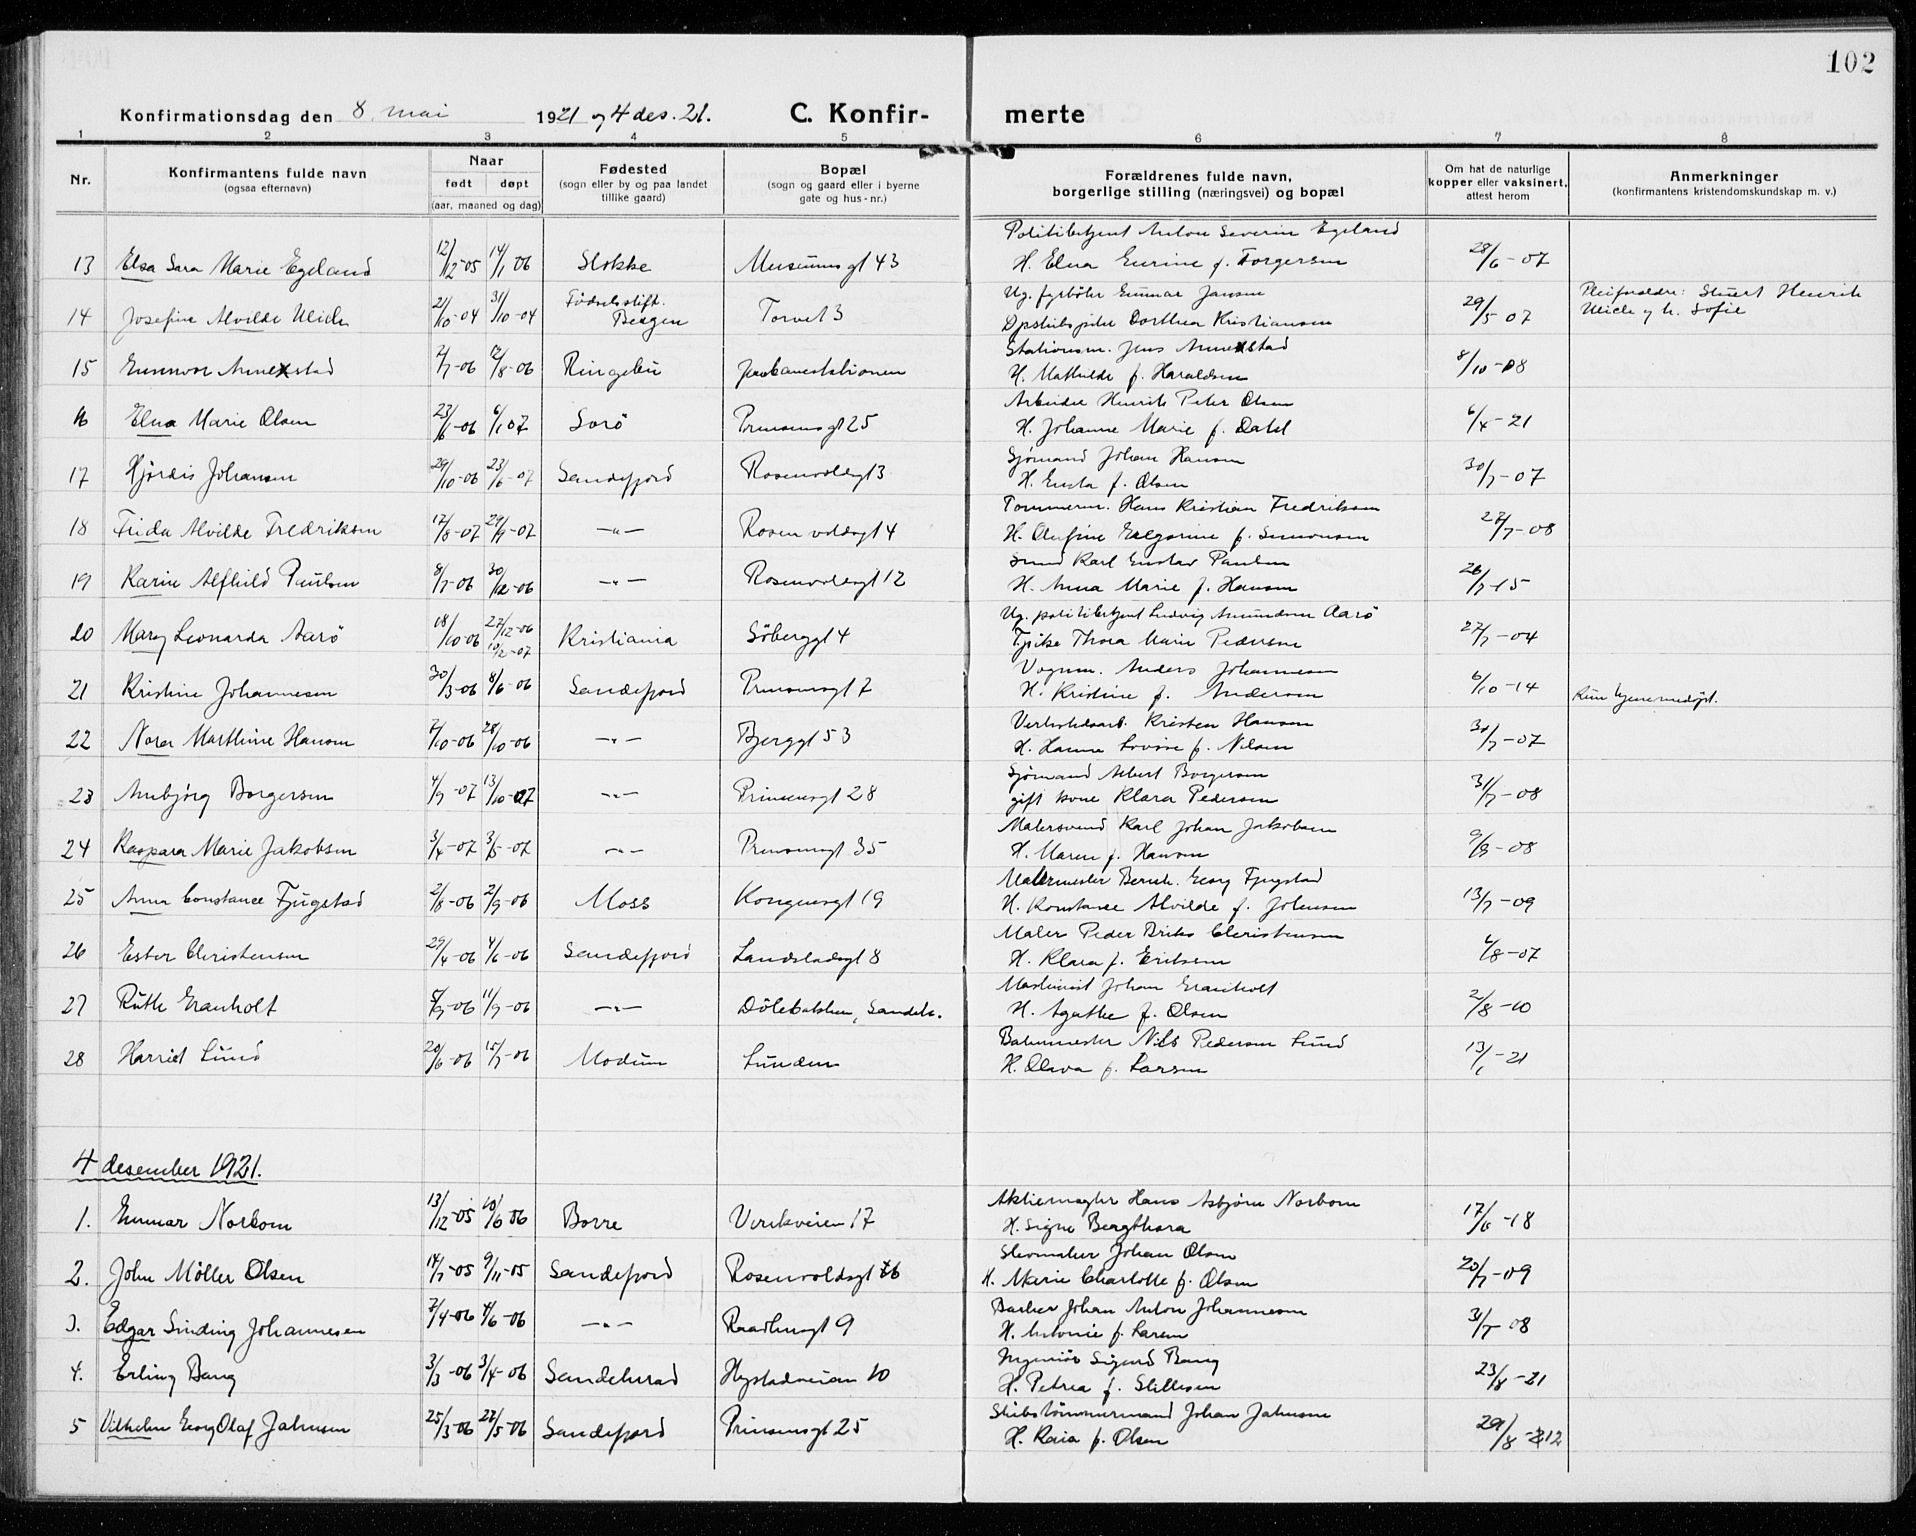 102
Konfirmationsdag den 8. mai 1921 og 4 des. 21. C. Konfir- merte
1 2 3 4 5 6 7 8
Nr. Konfirmantens fulde navn (ogsaa efternavn) Naar født døpt (aar, maaned og dag) Fødested (sogn eller by og paa landet tillike gaard) Bopæl (sogn og gaard eller i byerne gate og hus-nr.) Forældrenes fulde navn, borgerlige stilling (næringsvei) og bopæl Om hat de naturlige kopper eller vaksinert, attest herom Anmerkninger (konfirmantens kristendomskundskap m. v.)
Politibetjent Anton Severin Egeland
13 Elsa Sara Marie Egeland 12/12-05 14/1 06 Stokke Museumsgt 43 H. Elna Eurine f. Torgersen 28/6-07
Fødselsstift. Ug. fyrbøter Gunnar Jansen Pleiforeldre: Stuert Henrik
14 Josefine Alvilde Ulich 21/10-04 31/10-04 Bergen Torvet 3 Dorthea Kristiansen 29/5 07 Ulich og h. Sofie
Stationsm. Jens Annexstad
15 Gunnvor Annexstad 2/7-06 12/8-06 Ringebu Jernbanestationen H. Mathilde f. Haraldsen 8/10-08
Arbeider Henrik Peter Olsen
16 Elna Marie Olsen 23/6-06 6/1 07 Sorö Prinsensgt 25 H. Johanne Marie f. Dahl 6/4-21
Sjømand Johan Hansen
17 Hjördis Johansen 29/10-06 23/6-07 Sandefjord Rosenvoldsgt 3 H. f. Olsen 30/7-07
Tømmerm. Hans Kristian Fredriksen
18 Frida Alvilde Fredriksen 17/8-07 29/9-07 —"— Rosenvoldsgt 4 H. Olufine f. Simonsen 27/7-08
Smed Karl Gustav Paulsen
19 Karin Alfhild Paulsen 8/7-06 30/12-06 —"— Rosenvoldsgt 12 H. Anna Marie f. Hansen 26/7-15
Ug. politibetjent Ludvig Amundsen Aarö
20 Mary Leonarda Aarö 18/10-06 27/12-06 10/2-07 Kristiania Söberggt 4 Tjpike Thora Marie Pedersen 27/7-04
Vognm. Anders Johannesen
21 Kristine Johannesen 30/3-06 8/6-06 Sandefjord Prinsensgt 7 H. Kristine f. Andersen 6/10-14 Kun hjemmedøpt.
Verkstedsarb. Kristen Hansen
22 Nora Marthine Hansen 2/10-06 28/10-06 —"— Bjerggt 53 H. Hanna Lovise f. Nilsen 30/7-07
Sjømand Albert Borgersen
23 Annbjörg Borgersen 4/9-07 13/10-07 —"— Prinsensgt 28 gift kone Klara Pedersen 31/7-08
Malersvend Karl Johan Jakobsen
24 Kaspara Marie Jakobsen 3/4-07 3/5-07 —"— Prinsensgt 35 H. Maren f. Hansen 9/9-08
Malermester Bernh. Georg Fjugstad
25 Anna Constance Fjugstad 2/8-06 2/9-06 Moss Kongensgt 19 H. Konstance Alvilde f. Johnsen 13/7-09
Maler Peder Christensen
26 Ester Christensen 29/4-06 4/6-06 Sandefjord Landstadsgt 8 H. Klara f. Eriksen 6/8-07
Maskinist Johan Granholt
27 Ruth Granholt 5/7-06 11/9-06 —"— Dölebakken, Sandeh. H. Agathe f. Olsen 2/8-10
Banemester Nils Pedersen Lund
28 Harriet Lund 20/6-06 15/7-06 Modum Lunden H. Oleva f. Larsen 13/1-21
4 desember 1921.
Aktiemægler Hans Asbjørn Norbom
1. Gunnar Norbom 13/12-05 10/6 06 Borre Verikveien 17 H. Signe Bergthora 17/6-18
Skomaker Johan Olsen
2. John Möller Olsen 14/7-05 9/11-05 Sandefjord Rosenvoldsgt 16 H. Marie Charlotte f. Olsen 20/7-09
Barber Johan Anton Johannesen
3. Edgar Sinding Johannesen 7/4-06 4/6-06 —"— Raadhusgt 9 H. Antonie f. Larsen 31/7-08
Ingeniör Sigurd Bang
4. Erling Bang 3/3-06 3/4-06 Sandeherad Hystadveien 10 H. Petrea f. Stillesen 23/8-21
Skibstömmermand Johan Jahnsen
5 Vilhelm Georg Olaf Jahnsen 25/3-06 27/5-06 Sandefjord Prinsensgt 25 H. Kaia f. Olsen 29/8-12